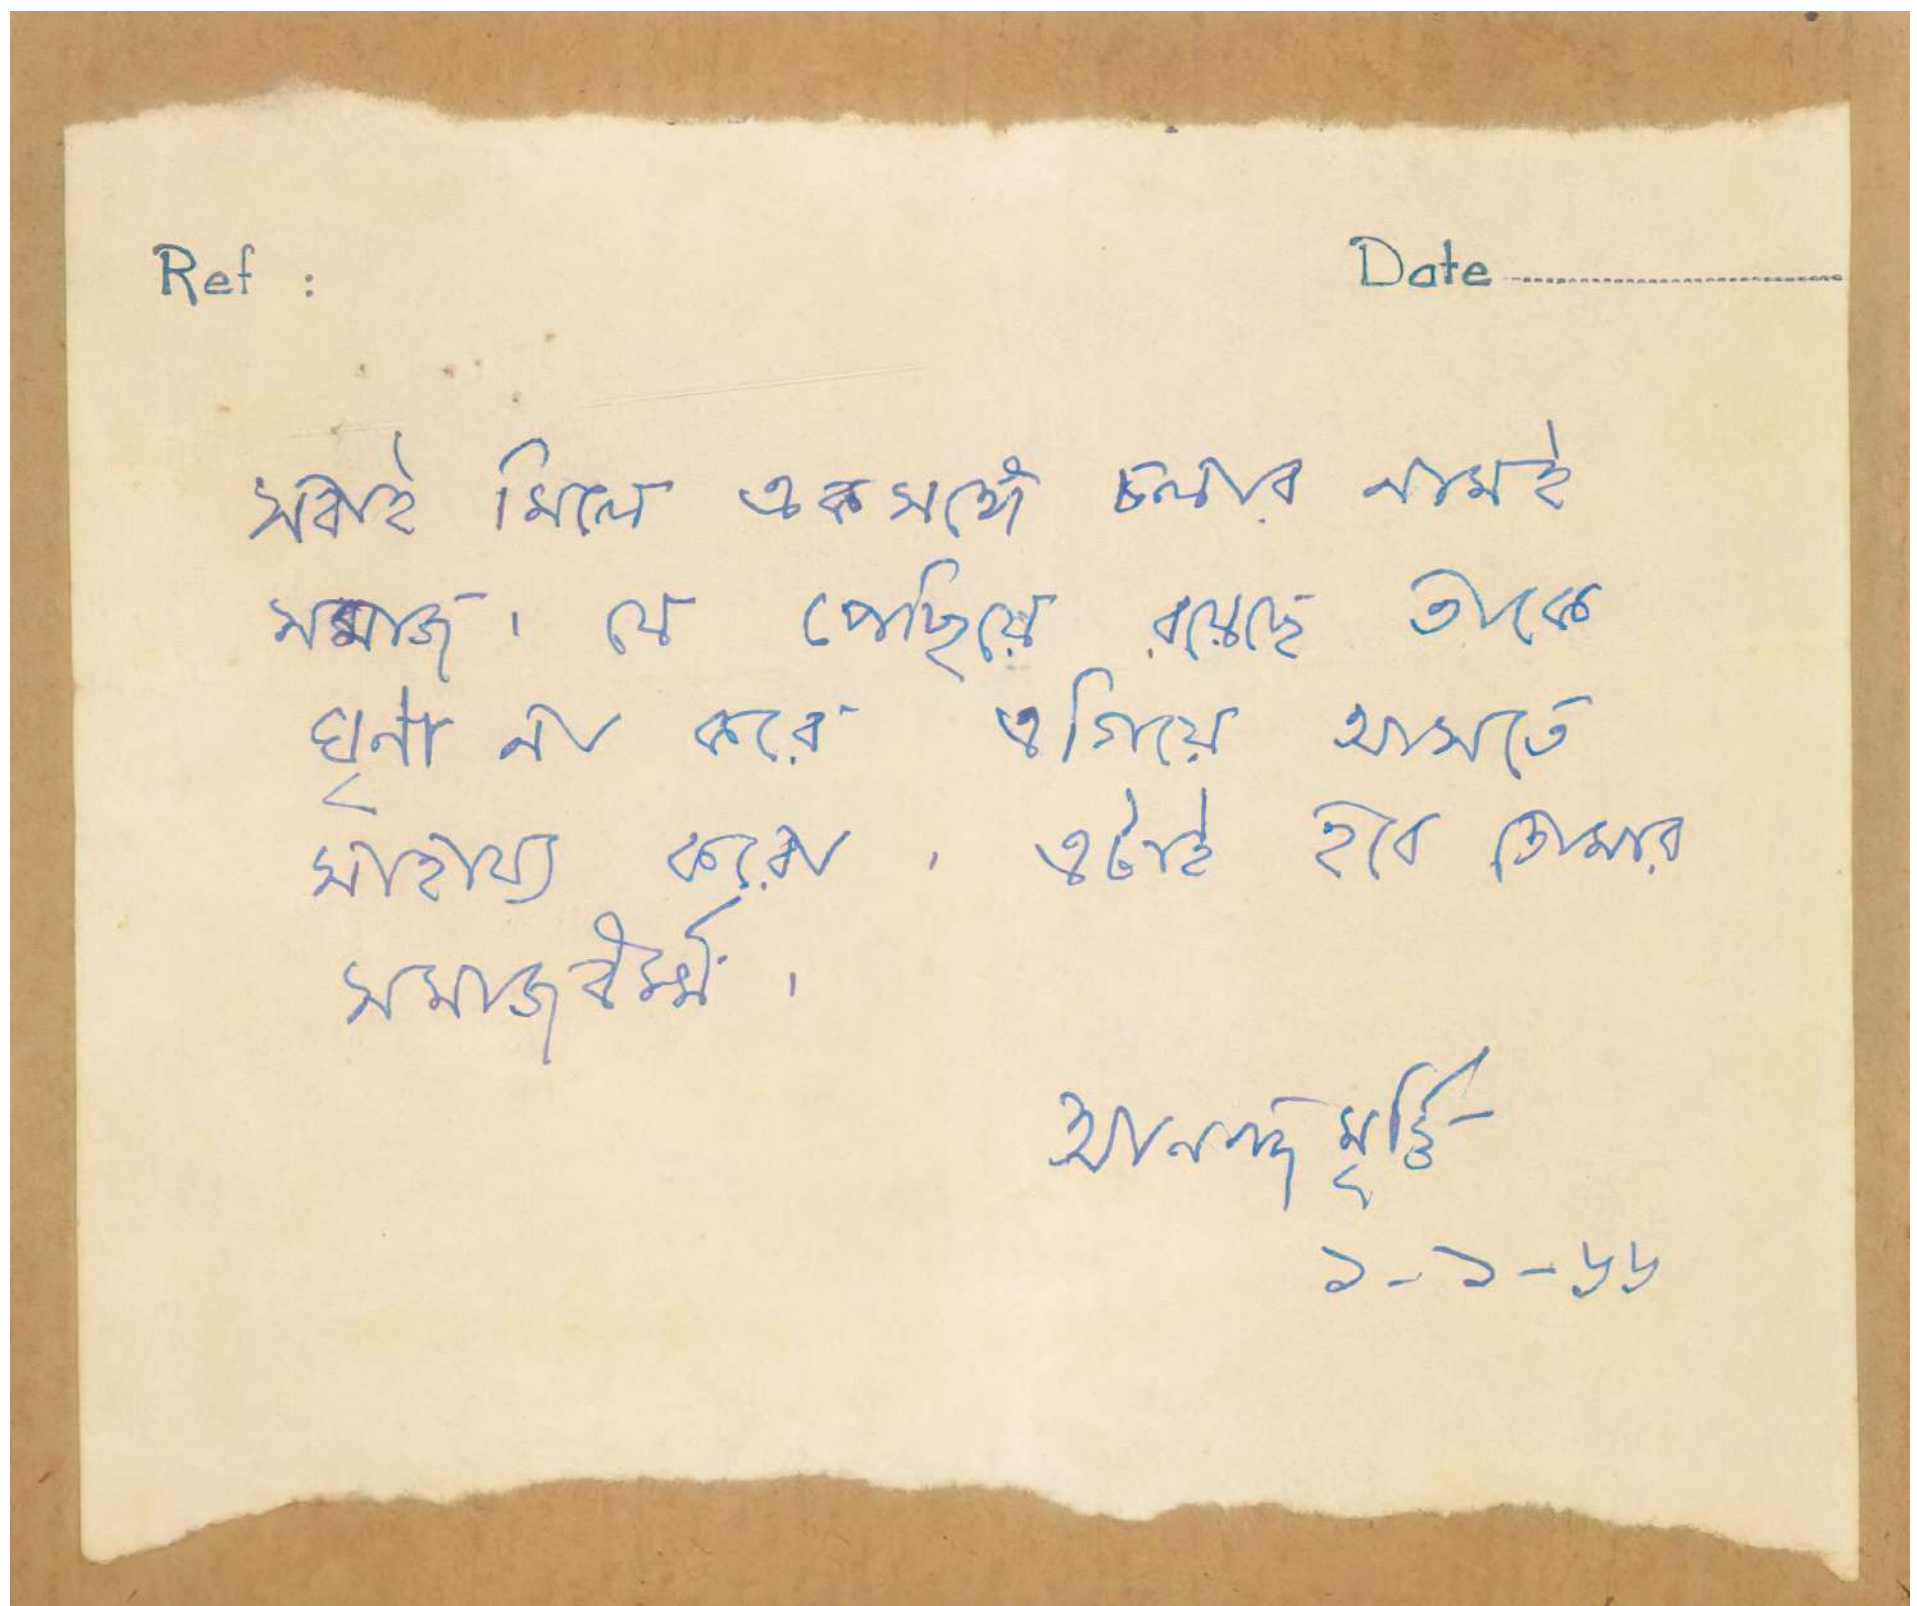 Ref :
Date
সবাই মিলে একসঙ্গে চলার নামই
সমাজ । যে পেছিয়ে রয়েছে তাকে
ঘৃণা না করে এগিয়ে আসতে
সাহায্য করো । এটাই হবে তোমার
সমাজধর্ম্ম ।
আনন্দমূর্ত্তি
১-১-৬৬